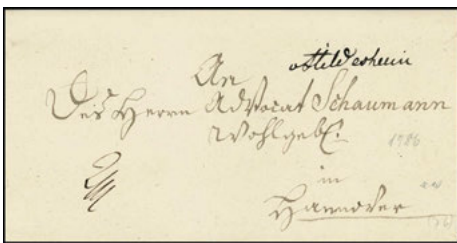 oHildesheim
An
Des Herrn Advocat Schaumann
Wohlgeb.
1786
in
Hannover